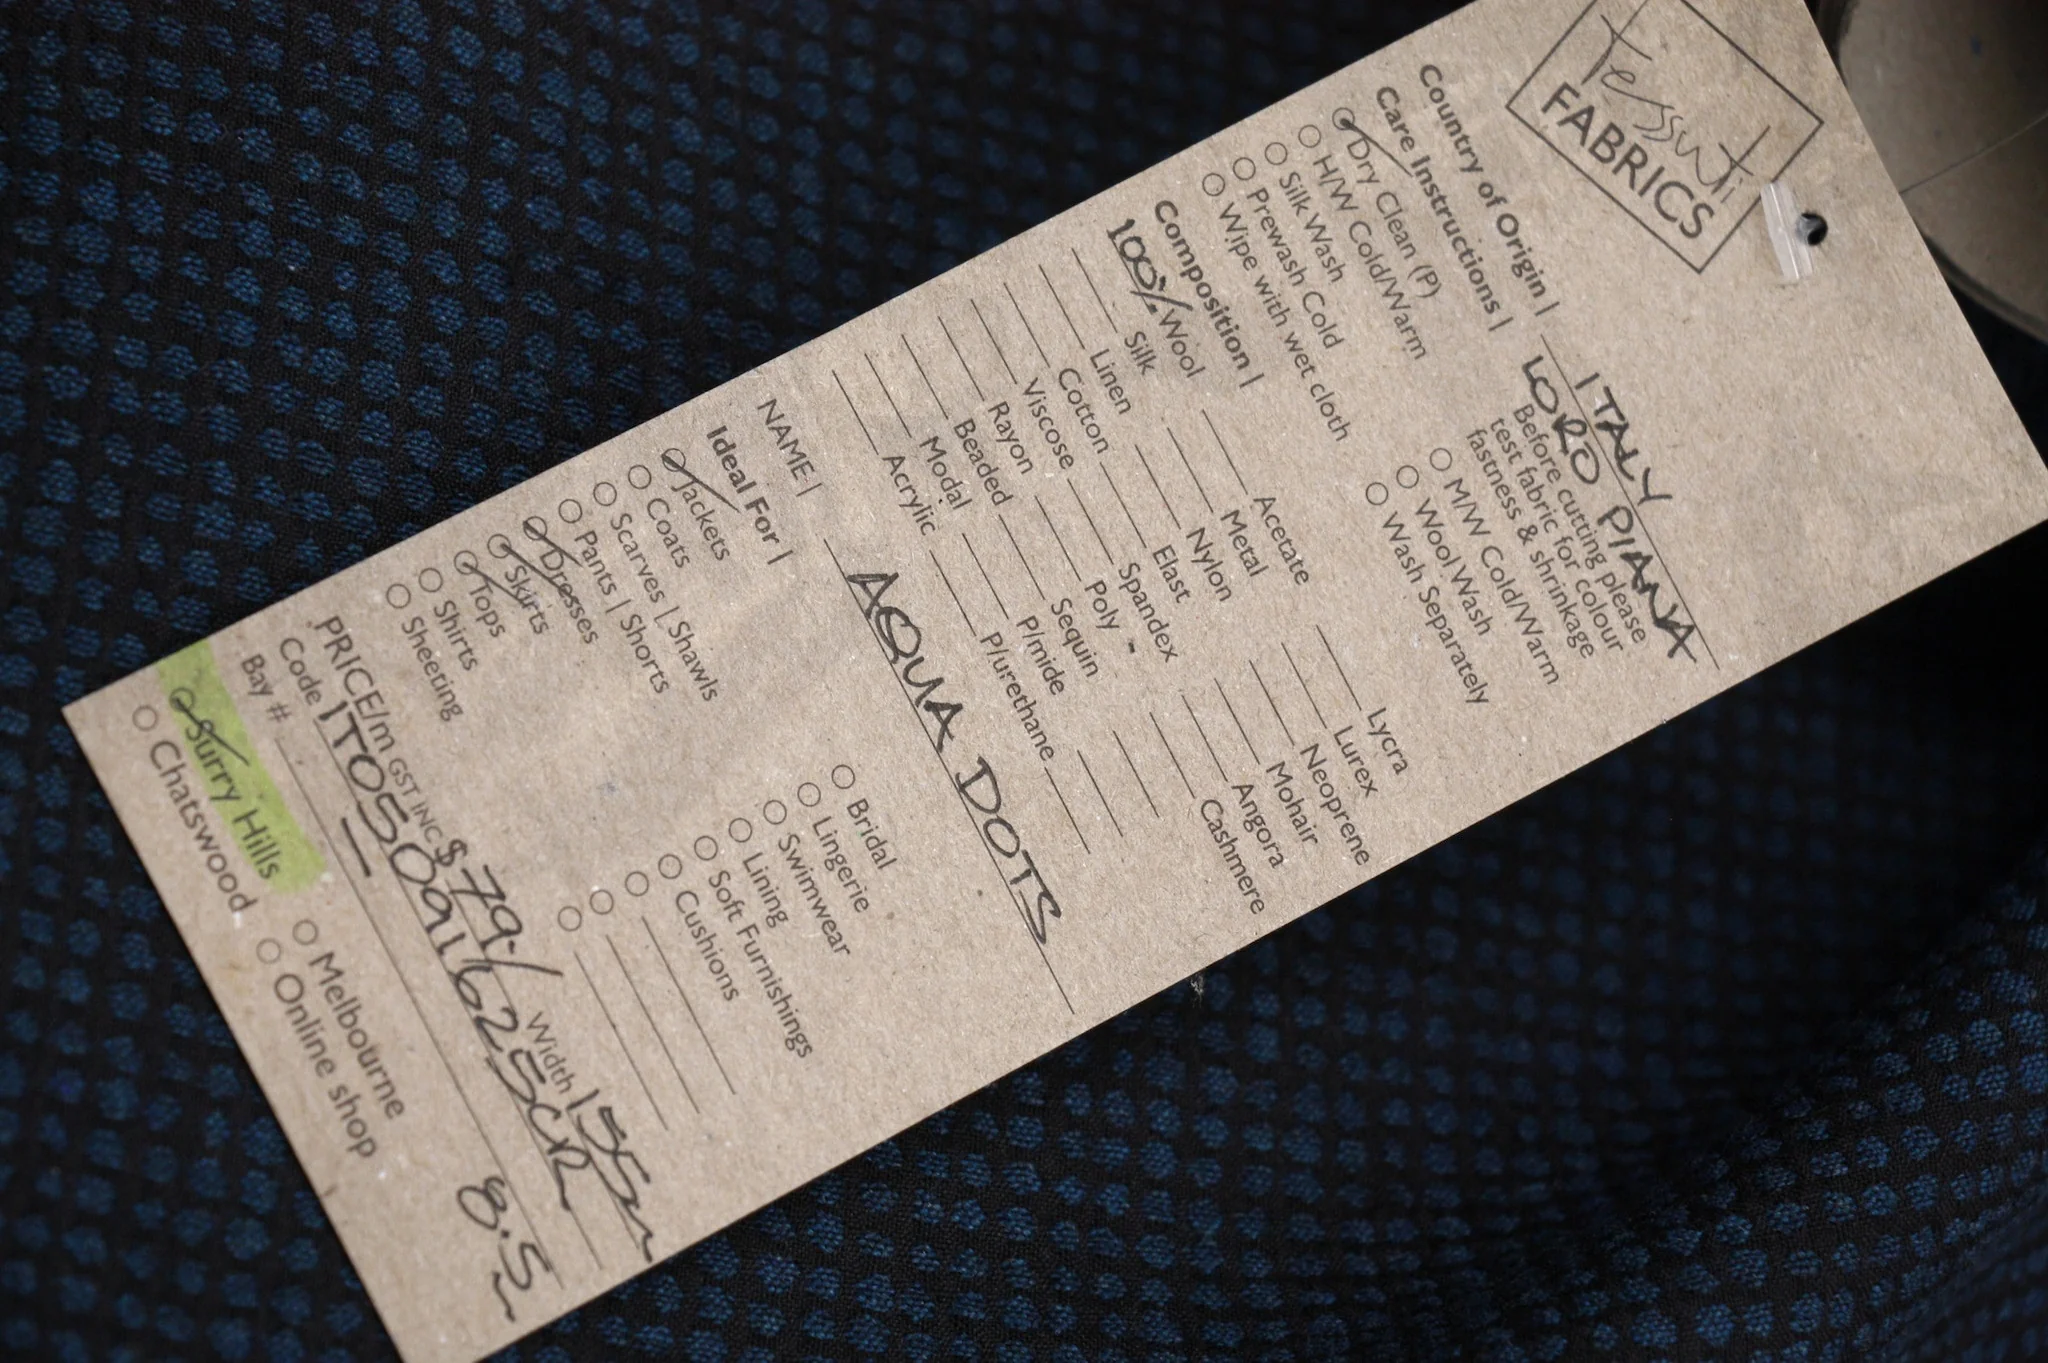 tessuti
FABRICS
Country of Origin | ITALY
LORO PIANA
Care Instructions | Before cutting please
test fabric for colour
fastness & shrinkage
Dry Clean (P)
H/W Cold/Warm M/W Cold/Warm
Silk Wash Wool Wash
Prewash Cold Wash Separately
Wipe with wet cloth
Composition |
100% Wool Acetate Lycra
Silk Metal Lurex
Linen Nylon Neoprene
Cotton Elast Mohair
Viscose Spandex Angora
Rayon Poly Cashmere
Beaded Sequin
Modal P/mide
Acrylic P/urethane
NAME | AQUA DOTS
Ideal For |
Jackets Bridal
Coats Lingerie
Scarves | Shawls Swimwear
Pants | Shorts Lining
Dresses Soft Furnishings
Skirts Cushions
Tops
Shirts
Sheeting
PRICE/m GST INC $79./ Width 155m
Code ITO5091625CR
Bay # 8.5m
Surry Hills Melbourne
Chatswood Online shop